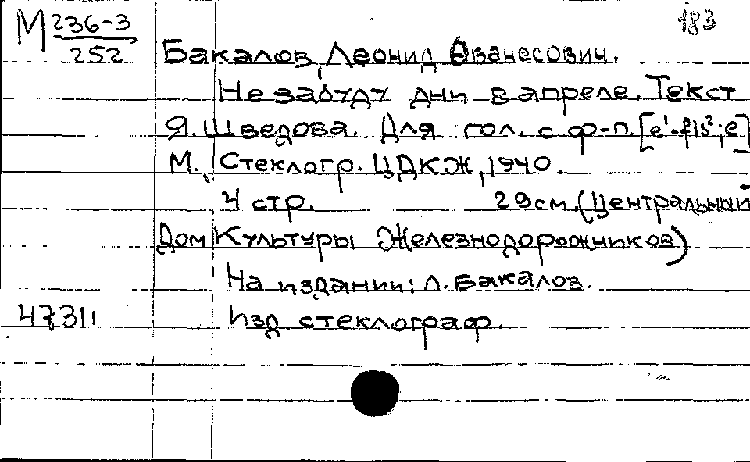 М 236-3
252
183
Бакалов, Леонид Ованесович.
Не забуду дни в апреле. Текст
Я. Шведова. Для гол. с ф-п. [e'-fis²; e]
М., Стеклогр. ЦДКЖ, 1940.
4 стр. 29см. (Центральный
Дом Культуры Железнодорожников)
На издании: Л. Бакалов.
47311 Изд. стеклограф.